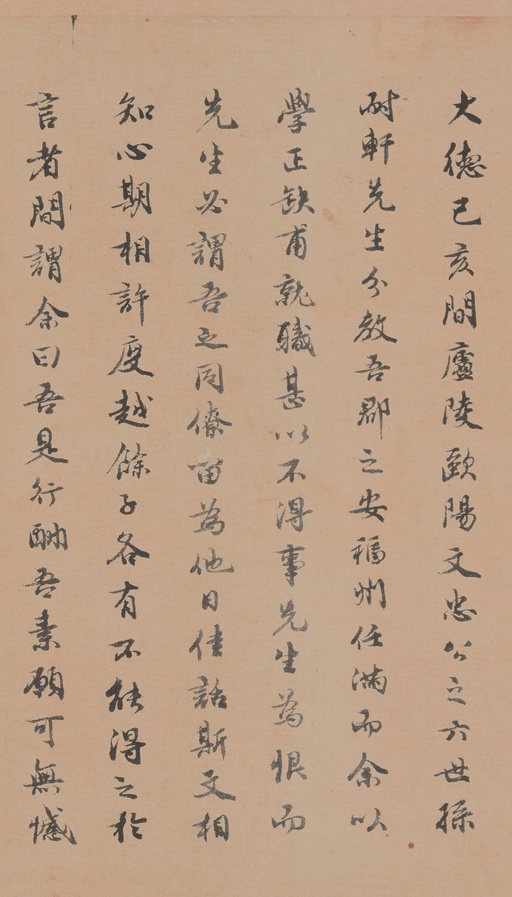 大德己亥間廬陵歐陽文忠公之六世孫
耐軒先生分教吾郡之安福州任滿而余以
學正缺甫就職甚以不得事先生為恨而
先生必謂吾之同僚留為他日佳話斯文相
知心期相許度越餘子各有不能得之於
言者間謂余曰吾是行酬吾素願可無憾